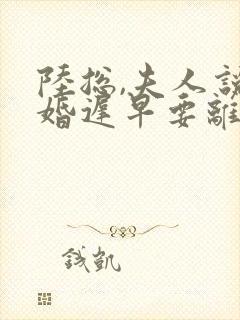 陸總,夫人說
婚遲早要離
錢凱